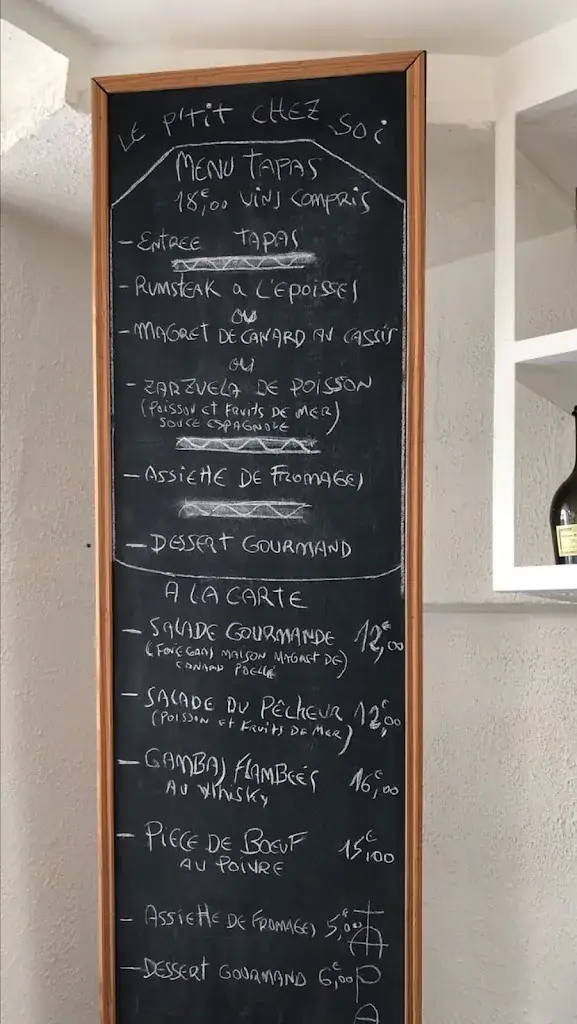 LE P'TIT CHEZ SOI
MENU TAPAS
18€,00 VINS COMPRIS
- ENTREE TAPAS
- RUMSTEAK A L'EPOISSES
OU
- MAGRET DE CANARD AU CASSIS
OU
- ZARZUELA DE POISSON
(POISSON ET FRUITS DE MER)
SOUCE ESPAGNOLE
- ASSIETTE DE FROMAGES
- DESSERT GOURMAND
A LA CARTE
- SALADE GOURMANDE 12€,00
(FOIE GRAS MAISON MAGRET DE)
CANARD POELLE
- SALADE DU PÊCHEUR 12€,00
(POISSON ET FRUITS DE MER)
- GAMBAS FLAMBEES 16€,00
AU WHISKY
- PIECE DE BOEUF 15€,00
AU POIVRE
- ASSIETTE DE FROMAGES 5€,00
- DESSERT GOURMAND 6€,00